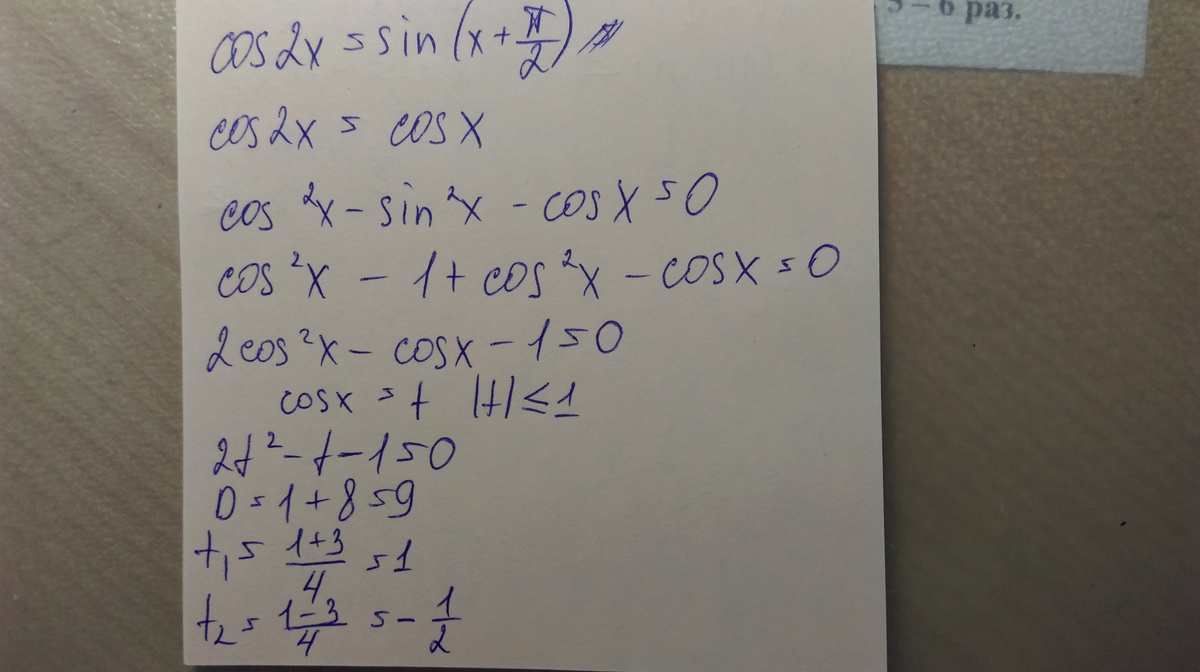 5 – 6 раз.
cos2x = sin(x + π/2)
cos2x = cosx
cos²x - sin²x - cosx = 0
cos²x - 1 + cos²x - cosx = 0
2cos²x - cosx - 1 = 0
cosx = t |t| ≤ 1
2t² - t - 1 = 0
D = 1 + 8 = 9
t₁ = (1+3)/4 = 1
t₂ = (1-3)/4 = - 1/2